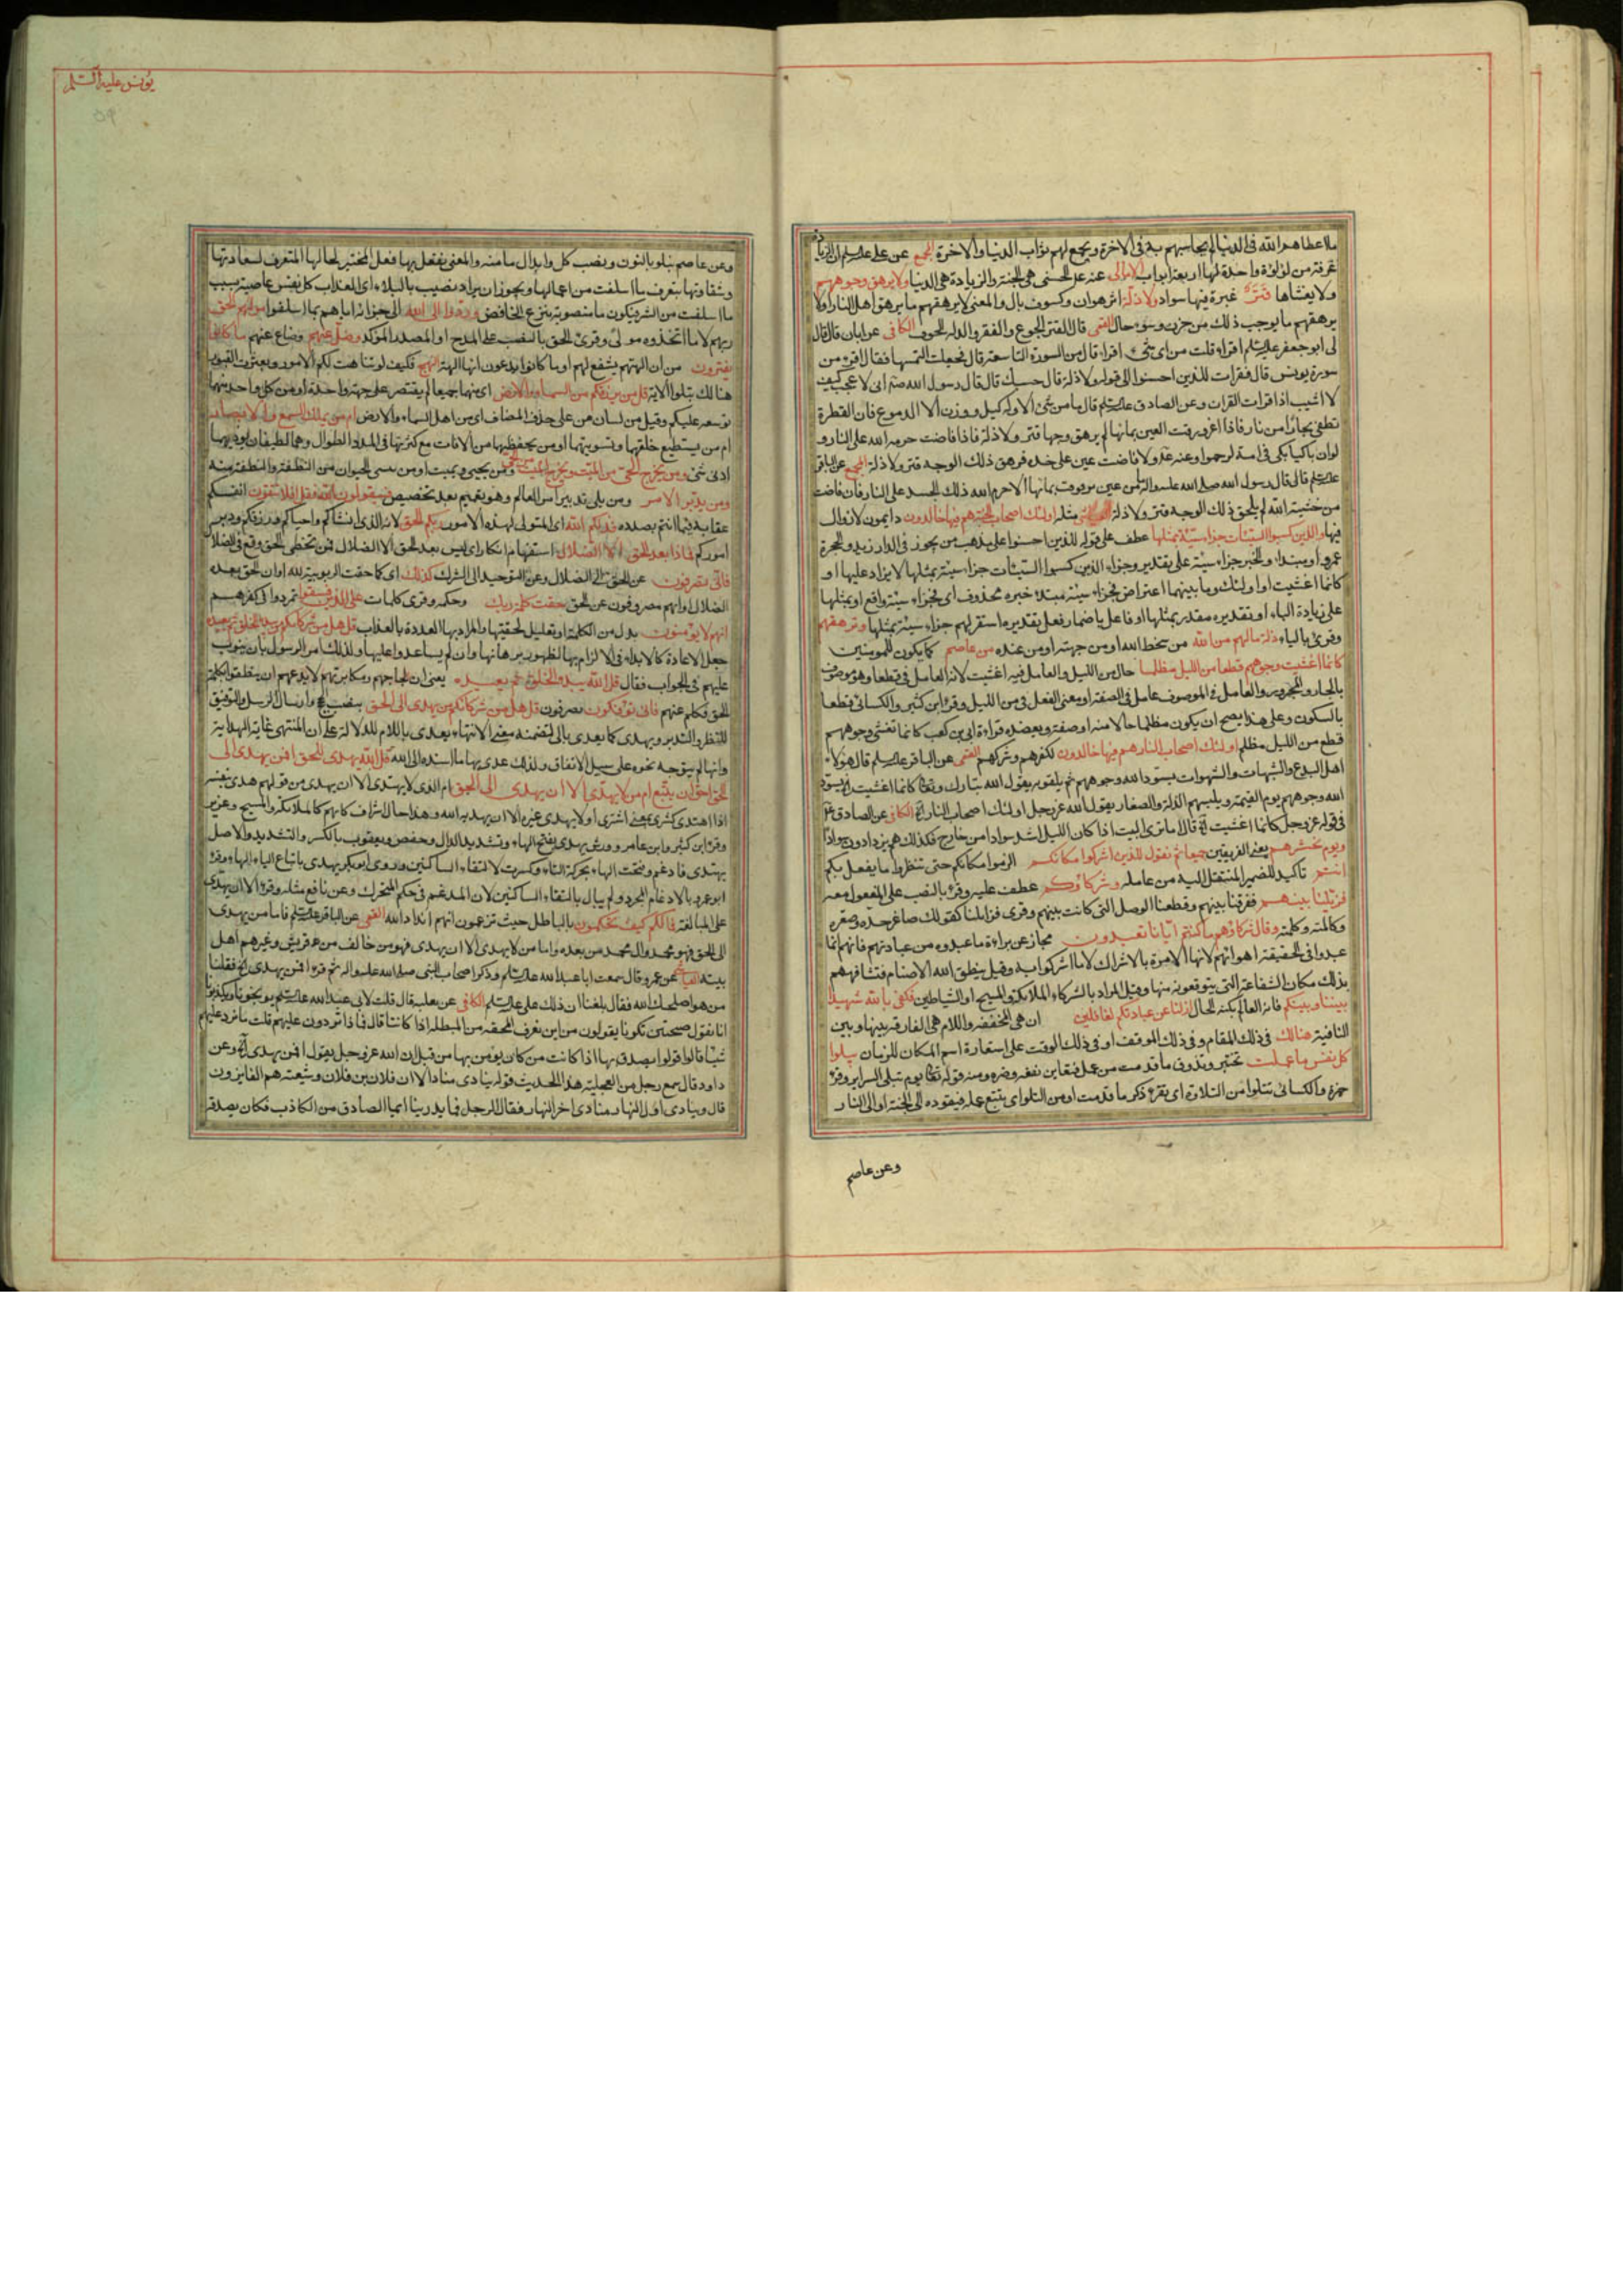 ملا عطاهم الله فى الدنيا لم يحاسبهم به فى الاخرة ويجمع لهم ثواب الدنيا والاخرة المجمع عن على
غرفة من لؤلؤة واحدة لها اربعة ابواب عنه الحسنى هى الجنة والزيادة هى الدنيا ولا يرهق وجوههم
ولا يغشاها قتر غبرة فيها سواد ولا ذلة اثر هوان وكسوف بال والمعنى لا يرهقهم ما يرهق اهل النار او لا
يرهقهم ما يوجب ذلك من حزن وسوء حال القمى قال القتر الجوع والفقر والذلة الخوف الكافى عن ابان قال قال
لى ابو جعفر اقراء قلت من اى شىء اقراء قال من السورة التاسعة قال فجعلت التمسها فقال اقرء من
سورة يونس قال فقرات للذين احسنوا الى قوله ولا ذلة قال حسبك قال قال رسول الله انى لاعجب كيف
لا اشيب اذا قرات القران وعن الصادق قال ما من شئ الا وله كيل ووزن الا الدموع فان القطرة
تطفئ بحارا من نار فاذا اغرورقت العين بمائها لم يرهق وجهها قتر ولا ذلة فاذا فاضت حرمه الله على النار و
لو ان باكيا بكى فى امة لرحموا وعنه ولا فاضت عين على خده فرهق ذلك الوجه قتر ولا ذلة المجمع عن الباقر
قال قال رسول الله صلى الله عليه واله ما من عين ترقرقت بمائها الا حرم الله ذلك الجسد على النار فان فاضت
من خشية الله لم يلحق ذلك الوجه قتر ولا ذلة مثله اولئك اصحاب الجنة هم فيها خالدون دايمون لا زوال
فيها والذين كسبوا السيئات جزاء سيئة بمثلها عطف على قوله للذين احسنوا على مذهب من يجوز فى الدار زيد والحجرة
عمرو او مبتداء والخبر جزاء سيئة على تقدير وجزاء الذين كسبوا السيئات جزاء سيئة بمثلها لا يزاد عليها او
كانما اغشيت او اولئك وما بينهما اعتراض فجزاء سيئة مبتداء خبره محذوف اى فجزاء سيئة واقع او بمثلها
على زيادة الباء او تقديره مقدر بمثلها او فاعل باضمار فعل بتقديره استقر لهم جزاء سيئة بمثلها وترهقهم
وقرئ بالياء ذلة مالهم من الله من سخط الله او من جهته او من عنده من عاصم كما يكون للمومنين
كانما اغشيت وجوههم قطعا من الليل مظلما حال من الليل والعامل فيه اغشيت لانه العامل فى قطعا وهو موصوف
بالجار والمجرور والعامل فى الموصوف عامل فى الصفة او معنى الفعل فى من الليل وقرء ابن كثير والكسائى قطعا
بالسكون وعلى هذا يصح ان يكون مظلما حالا منه او صفة ويعضده قراءة ابى بن كعب كانما تغشى وجوههم
قطع من الليل مظلم اولئك اصحاب النار هم فيها خالدون لكفرهم وشركهم القمى عن الباقر قال هؤلاء
اهل البدع والشبهات والشهوات يسود الله وجوههم ثم يلقونه يقول الله تبارك وتعالى كانما اغشيت
الله وجوههم يوم القيمة ويلبسهم الذلة والصغار يقول الله عز وجل اولئك اصحاب النار الكافى عن الصادق
فى قوله عز وجل كانما اغشيت قال اما ترى البيت اذا كان الليل اشد سوادا من خارج فكذلك هم يزدادون سوادا
ويوم نحشرهم يعنى الفريقين جميعا ثم نقول للذين اشركوا مكانكم الزموا مكانكم حتى تنظروا ما يفعل بكم
انتم تاكيد للضمير المنتقل اليه من عامله وشركاؤكم عطف عليه وقرء بالنصب على المفعول معه
فزيلنا بينهم ففرقنا بينهم وقطعنا الوصل التى كانت بينهم وقرى فزايلنا كقولك صاعر خده وصعره
وكالمته وكلمته وقال شركاؤهم ما كنتم ايانا تعبدون مجاز عن براءة ما عبدوه من عبادتهم فانهم انما
عبدوا فى الحقيقة اهوائهم لانها الامرة بالاشراك لا ما اشركوا به وقيل ينطق الله الاصنام فتشافههم
بذلك مكان الشفاعة التى يتوقعونه منها وقيل المراد بالشركاء الملائكة والمسيح او الشياطين فكفى بالله شهيدا
بيننا وبينكم فانه العالم بكنه الحال ان كنا عن عبادتكم لغافلين ان هى المخففة واللام هى الفارقة بينها وبين
النافية هنالك فى ذلك المقام وفى ذلك الموقف او فى ذلك الوقت على استعارة اسم المكان للزمان تبلوا
كل نفس ما عملت تختبر وتذوق ما قدمت من عمل فتعاين نفعه وضره ومنه قوله تعالى يوم تبلى السراير وقرء
حمزة والكسائى تتلوا من التلاوة اى تقرء ذكر ما قدمت او من التلو اى يتبع عمله فيقوده الى الجنة او الى النار
وعن عاصم
يونس عليه السلم
٥٩
وعن عاصم نبلو بالنون ونصب كل وابدال ما منه والمعنى نفعل بها فعل المختبر لحالها المتعرف لسعادتها
وشقاوتها بتعرف ما اسلفت من اعمالها ويجوز ان يراد نصيب بالبلاء اى العذاب كل نفس عاصية بسبب
ما اسلفت من الشر فيكون ما منصوبة بنزع الخافض وردوا الى الله الى جزائه اياهم بما اسلفوا مولاهم الحق
ربهم لا ما اتخذوه مولى وقرئ الحق بالنصب على المدح او المصدر المؤكد وضل عنهم وضاع عنهم ما كانوا
يفترون من ان الهتهم يشفع لهم او ما كانوا يدعون انها الهة النهج فكيف لو تناهت لكم الامور وبعثرت القبور
هنالك تبلوا الاية قل من يرزقكم من السماء والارض اى منهما جميعا لم يقتصر على جهة واحدة او من كل واحد منهما
توسعه عليكم وقيل من لبيان من على حذف المضاف اى من اهل السماء والارض ام من يملك السمع والابصار
ام من يستطيع خلقهما وتسويتهما او من يحفظهما من الافات مع كثرتها فى المدد الطوال وهما لطيفان يوذيهما
ادنى شئ ومن يخرج الحى من الميت ويخرج الميت من الحى ومن يحيى ويميت او من ينشى الحيوان من النطفة والنطفة منه
ومن يدبر الامر ومن يلى تدبير امر العالم وهو تعميم بعد تخصيص فسيقولون الله فقل افلا تتقون انفسكم
عقابه فيما انتم بصدده فذلكم الله اى المتولى لهذه الامور ربكم الحق لانه الذى انشاكم واحياكم ورزقكم ودبر
اموركم فماذا بعد الحق الا الضلال استفهام انكار اى ليس بعد الحق الا الضلال فمن تخطى الحق وقع فى الضلال
فانى تصرفون عن الحق الى الضلال وعن التوحيد الى الشرك كذلك اى كما حقت الربوبية لله او ان الحق بعده
الضلال او انهم مصروفون عن الحق حقت كلمة ربك وحكمه وقرى كلمات على الذين فسقوا تمردوا فى كفرهم
انهم لا يؤمنون بدل من الكلمة او تعليل لحقيتها والمراد بها العدة بالعذاب قل هل من شركائكم من يبدء الخلق ثم يعيده
جعل الاعادة كالابداء فى الالزام بها لظهور برهانها وان لم يساعدوا عليها ولذلك امر الرسول بان ينوب
عليهم فى الجواب فقال قل الله يبدء الخلق ثم يعيده يعنى ان لجاجهم ومكابرتهم لا يدعهم ان ينطقوا بكلمة
الحق فكلم عنهم فانى تؤفكون تصرفون قل هل من شركائكم من يهدى الى الحق بنصب الحجج وارسال الرسل والتوفيق
للنظر والتدبر ويهدى كما يعدى بالى لتضمنه معنى الانتهاء يعدى باللام للدلالة على ان المنتهى غاية الهداية
وانها لم يتوجه نحوه على سبيل الاتفاق ولذلك عدى بها ما اسنده الى الله قل الله يهدى للحق افمن يهدى الى
الحق احق ان يتبع ام من لا يهدى الا ان يهدى الى الحق ام الذى لا يهتدى الا ان يهدى من قولهم هدى بنفسه
اذا اهتدى كشرى بمعنى اشترى او لا يهدى غيره الا ان يهديه الله وهذا حال اشراف شركائهم كالملائكة والمسيح وعزير
وقرء ابن كثير وابن عامر وورش يهدى بفتح الهاء وتشديد الدال وحفص ويعقوب بالكسر والتشديد والاصل
يهتدى فادغم وفتحت الهاء بحركة التاء وكسرت لالتقاء الساكنين وروى ابو بكر يهدى باتباع الياء الهاء وقرء
ابو عمرو بالادغام المجرد ولم يبال بالتقاء الساكنين لان المدغم فى حكم المتحرك وعن نافع مثله وقرء الا ان يهدى
على المبالغة فمالكم كيف تحكمون بالباطل حيث تزعمون انهم انداد الله القمى عن الباقر فاما من يهدى
الى الحق فهو محمد وال محمد من بعده واما من لا يهدى الا ان يهدى فهو من خالف من قريش وغيرهم اهل
بيته عن عمرو قال سمعت ابا عبد الله وذكر اصحاب النبى صلى الله عليه واله ثم قرء افمن يهدى فقلنا
من هو اصلحك الله فقال بلغنا ان ذلك على الكافى عن ثعلبة قال قلت لابى عبد الله يوبخونا ويكذبونا
انا نقول صيحتين تكونا يقولون من اين نعرف المحقة من المبطلة اذا كانتا قال فما ذا تردون عليهم قلت ما نرد عليهم
شيئا قال قولوا يصدق بها اذا كانت من كان يؤمن بها من قبل ان الله عز وجل يقول افمن يهدى وعن
داود قال سمع رجل من العجلية هذا الحديث قوله ينادى مناد الا ان فلان بن فلان وشيعته هم الفايزون
قال وينادى اول النهار منادى اخر النهار فقال الرجل فما يدرينا ايما الصادق من الكاذب فكان يصدقه